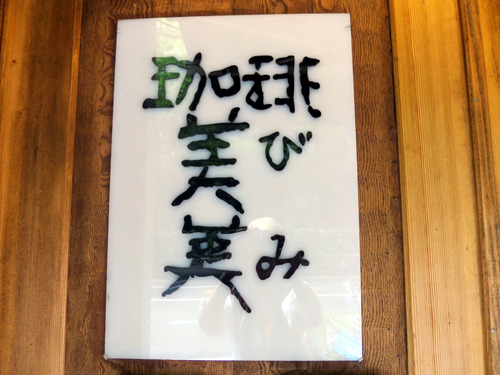 珈琲
美美
びみ